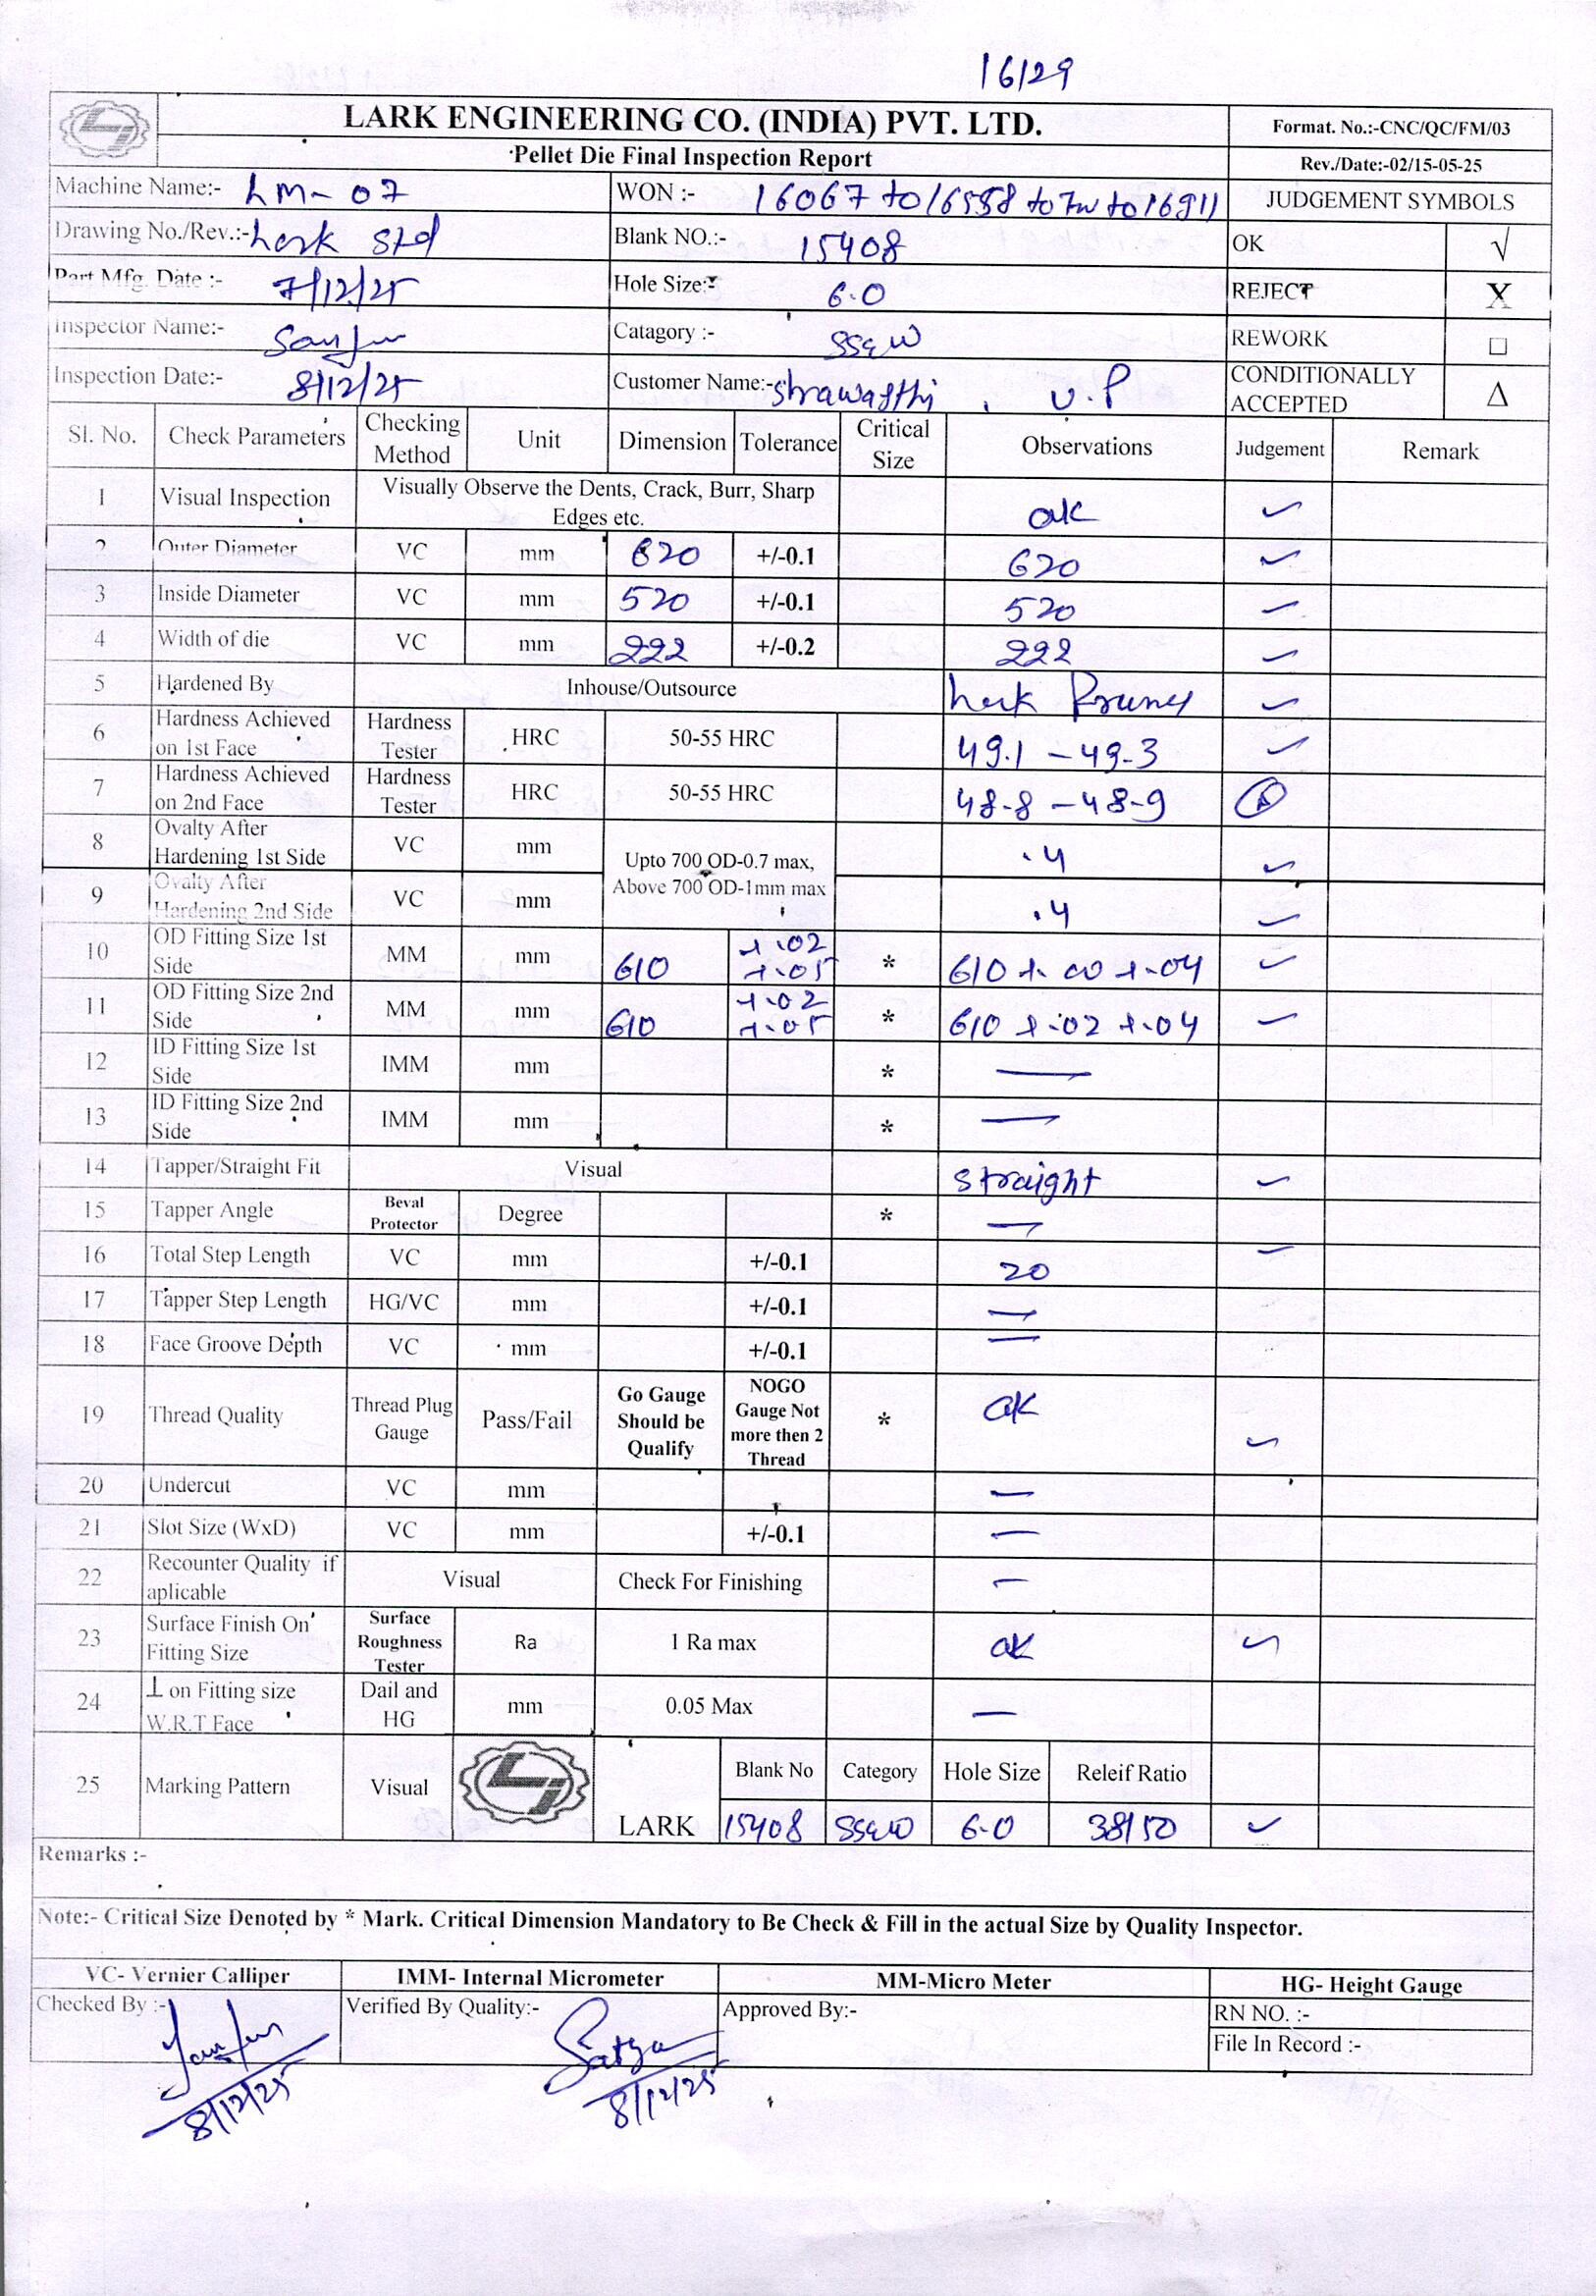 16/29
LARK ENGINEERING CO. (INDIA) PVT. LTD.
Format. No.:-CNC/QC/FM/03
Pellet Die Final Inspection Report
Rev./Date:-02/15-05-25
Machine Name:- LM-07
WON :- 16067 to 16558 to TW to 16911
JUDGEMENT SYMBOLS
Drawing No./Rev.:- Lark Std
Blank NO.:- 15408
OK √
Part Mfg. Date :- 7/12/25
Hole Size:- 6.0
REJECT X
Inspector Name:-
Catagory :-
REWORK □
Inspection Date:- 8/12/25
Customer Name:- Shrawasthi, U.P
CONDITIONALLY ACCEPTED Δ
Sl. No. Check Parameters Checking Method Unit Dimension Tolerance Critical Size Observations Judgement Remark
1 Visual Inspection Visually Observe the Dents, Crack, Burr, Sharp Edges etc. ok ✓
2 Outer Diameter VC mm 620 +/-0.1 620 ✓
3 Inside Diameter VC mm 520 +/-0.1 520 ✓
4 Width of die VC mm 222 +/-0.2 222 ✓
5 Hardened By Inhouse/Outsource Lark ✓
6 Hardness Achieved on 1st Face Hardness Tester HRC 50-55 HRC 49.1 - 49.3 ✓
7 Hardness Achieved on 2nd Face Hardness Tester HRC 50-55 HRC 48.8 - 48.9
8 Ovalty After Hardening 1st Side VC mm Upto 700 OD-0.7 max, Above 700 OD-1mm max .4 ✓
9 Ovalty After Hardening 2nd Side VC mm .4 ✓
10 OD Fitting Size 1st Side MM mm 610 +.02 +.05 * 610 +.00 +.04 ✓
11 OD Fitting Size 2nd Side MM mm 610 +.02 +.05 * 610 +.02 +.04 ✓
12 ID Fitting Size 1st Side IMM mm * —
13 ID Fitting Size 2nd Side IMM mm * —
14 Tapper/Straight Fit Visual Straight ✓
15 Tapper Angle Beval Protector Degree * —
16 Total Step Length VC mm +/-0.1 20 ✓
17 Tapper Step Length HG/VC mm +/-0.1 —
18 Face Groove Depth VC mm +/-0.1 —
19 Thread Quality Thread Plug Gauge Pass/Fail Go Gauge Should be Qualify NOGO Gauge Not more then 2 Thread * ok ✓
20 Undercut VC mm —
21 Slot Size (WxD) VC mm +/-0.1 —
22 Recounter Quality if aplicable Visual Check For Finishing —
23 Surface Finish On Fitting Size Surface Roughness Tester Ra 1 Ra max ok ✓
24 ⊥ on Fitting size W.R.T Face Dail and HG mm 0.05 Max —
25 Marking Pattern Visual LARK Blank No Category Hole Size Releif Ratio
15408 6.0 38/50 ✓
Remarks :-
Note:- Critical Size Denoted by * Mark. Critical Dimension Mandatory to Be Check & Fill in the actual Size by Quality Inspector.
VC- Vernier Calliper IMM- Internal Micrometer MM-Micro Meter HG- Height Gauge
Checked By :- Verified By Quality:- Satya Approved By:- RN NO. :-
File In Record :-
8/12/25 8/12/25